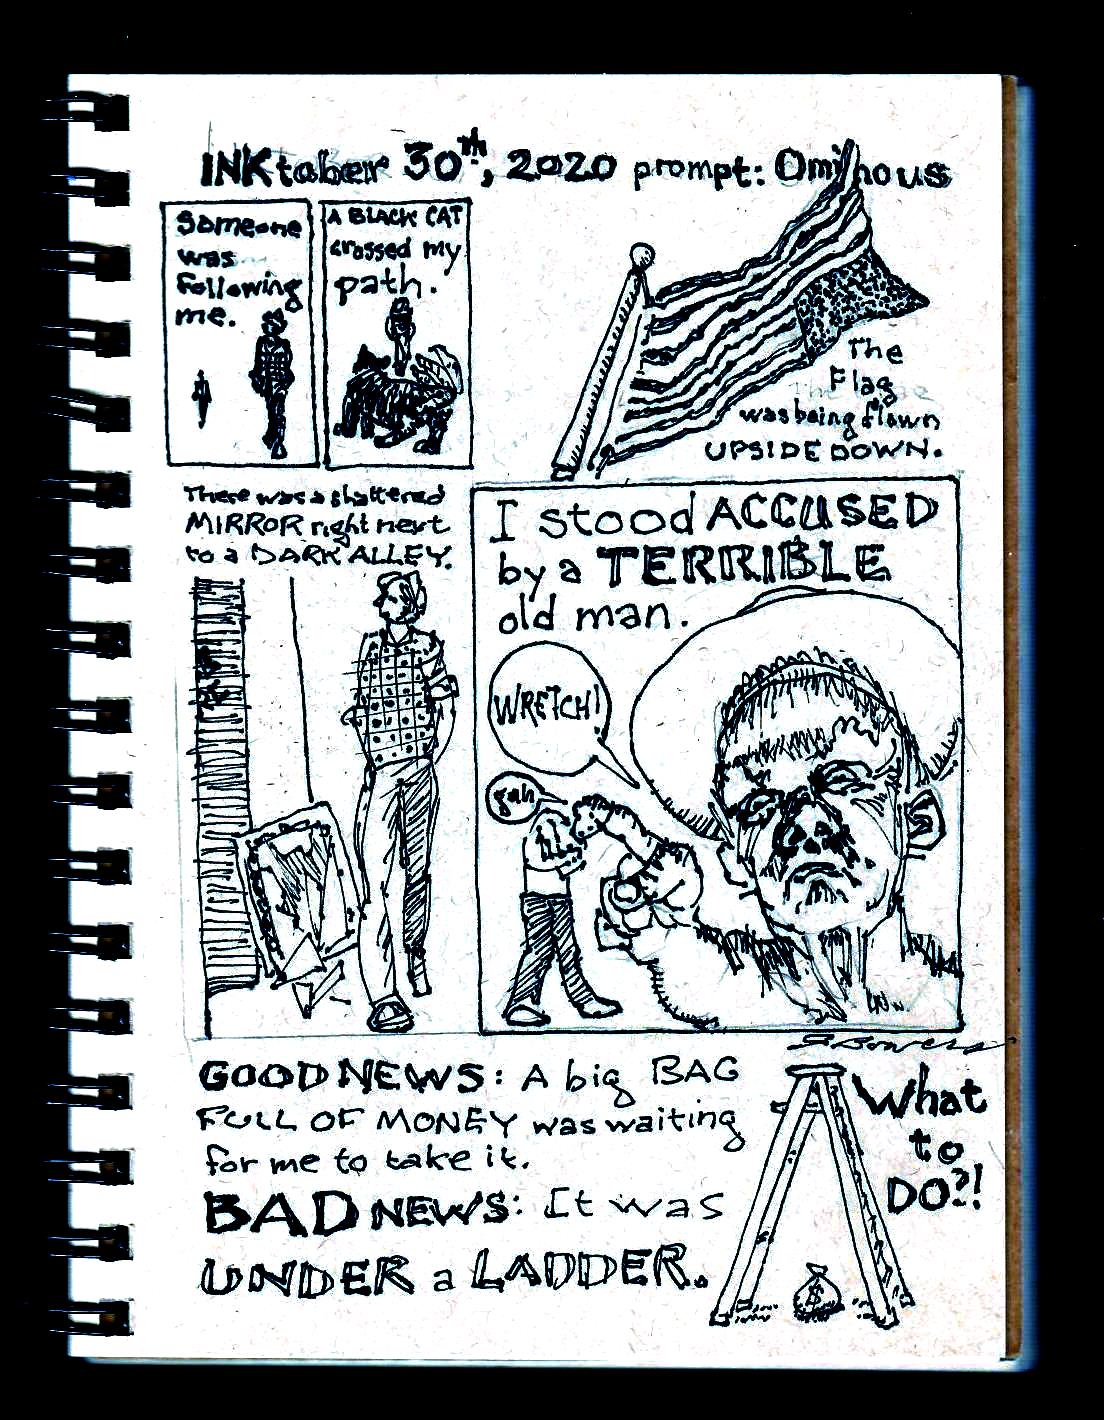 INKtober 30th, 2020 prompt: Ominous
Someone
was
Following
me.
A BLACK CAT
crossed my
path.
The
Flag
was being flown
UPSIDE DOWN.
There was a shattered
MIRROR right next
to a DARK ALLEY.
I stood ACCUSED
by a TERRIBLE
old man.
WRETCH!
gah
GOOD NEWS: A big BAG
FULL OF MONEY was waiting
for me to take it.
BAD NEWS: It was
UNDER a LADDER.
What
to
DO?!
$